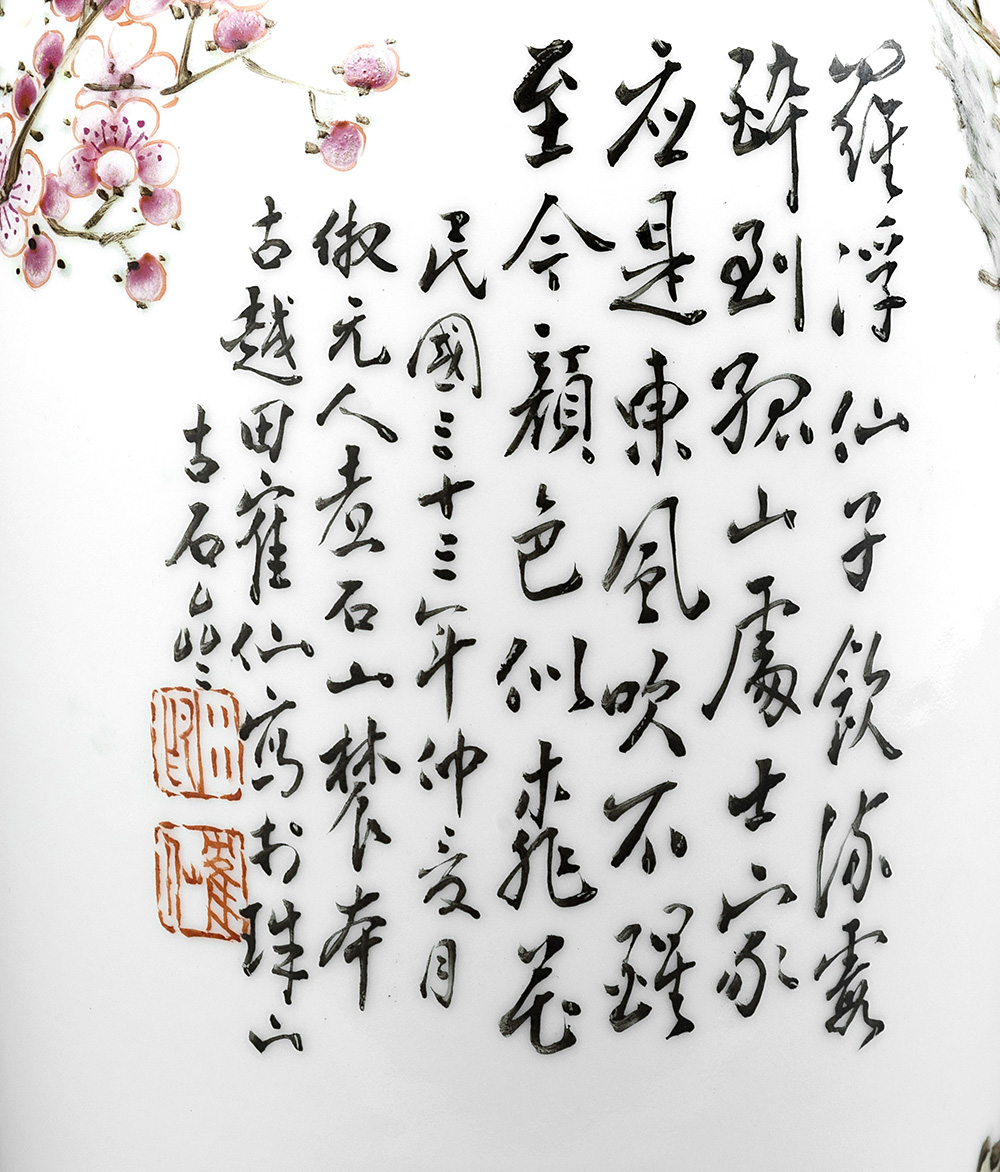 羅浮仙子飲流霞
醉到孤山處士家
应是東風吹不醒
至今顏色似桃花
民國三十三年仲夏月
倣元人煮石山農本
古越田寉仙寫於珠山
古石